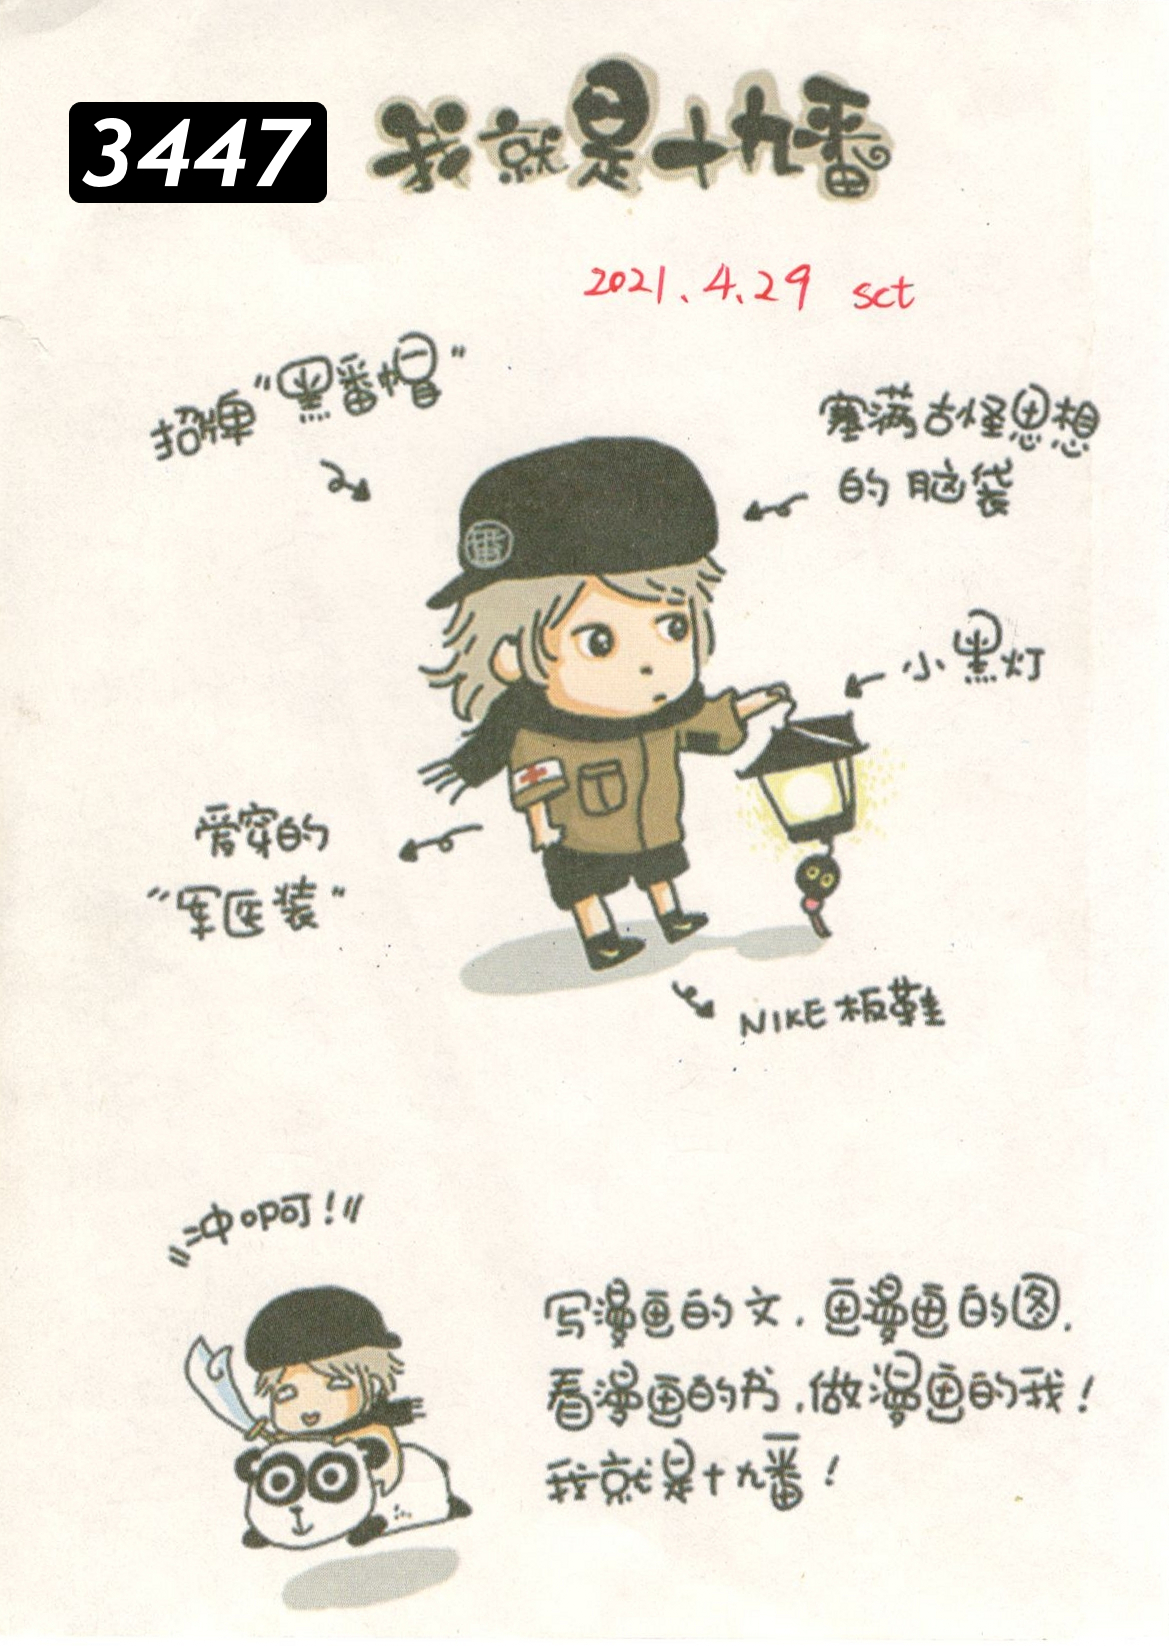 3447
我就是十九番
2021.4.29 sct
招牌“黑番帽”
塞满古怪思想
的脑袋
小黑灯
爱穿的
“军医装”
NIKE板鞋
冲呷呵！
写漫画的文．画漫画的图．
看漫画的书．做漫画的我！
我就是十九番！
番